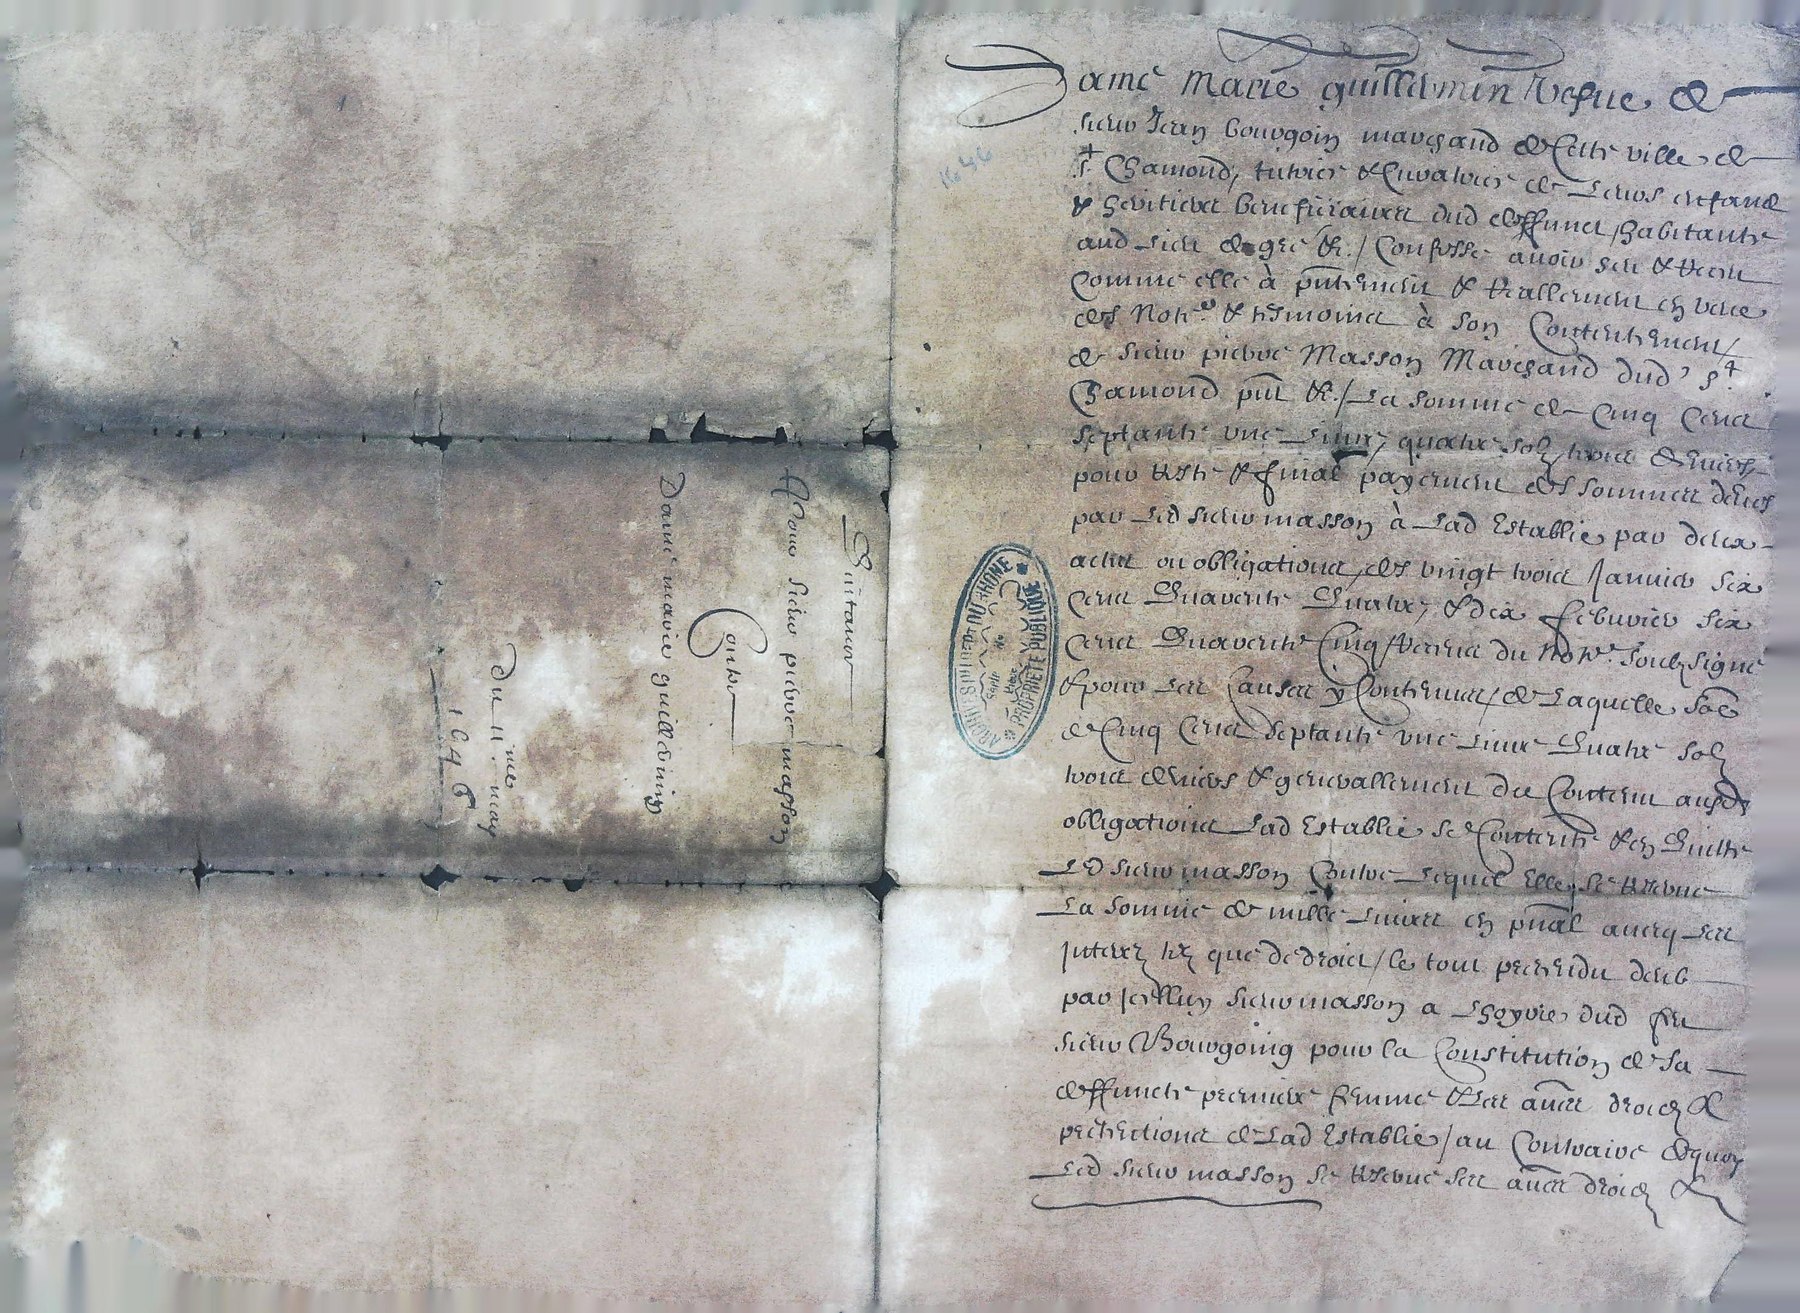 Dame Marie guillermin vefue de
sieur Jean bourgoin marchand de Cette ville de
st Chamond, tutrice & Curatrice de Leurs enfans
& heritiers beneficiaires dud deffunct, habitante
aud lieu de gré &./ Confesse avoir heu & Receu
comme elle à pñtement & Reallement en veue
des Notre & tesmoins à son Contentement/
de sieur pierre Masson Marchand dud st
Chamond pñt &./ La somme de Cinq Cens
septante une Liure, quatre solz, trois deniers
pour reste & final payement des sommes deues
par Led sieur masson à Lad Establie par deux
actes ou obligations, des vingt trois Januier six
Cens Quarente Quatre, & dix febvrier six
Cens Quarente Cinq, Receus du Notre soubzsigné
& pour Les Causes y Contenues, de Laquelle sõe
de Cinq Cens septante une Liure Quatre solz
trois deniers & generallement du Contenu ausd
obligations Lad Establie se Contente & en Quitte
Led sieur masson Outre Lequel Elle se reserue
La somme de mille Liures en pñal auecq ses
jnterez telz que de droict, le tout pretendu deub
par Jcelluy sieur masson a Lhoyrie dud feu
sieur Bourgoing pour la Constitution de sa
deffuncte premiere femme & ses aues droictz &
pretentions de Lad Establie, au Contraire dequoy
Led sieur masson se reserue ses aues droictz &
1646
ARCHIVES DU RHONE
PROPRIÉTÉ PUBLIQUE
Quitance
Pour sieur pierre masson
Contre
Dame marie guillerming
Du 11me may
1646